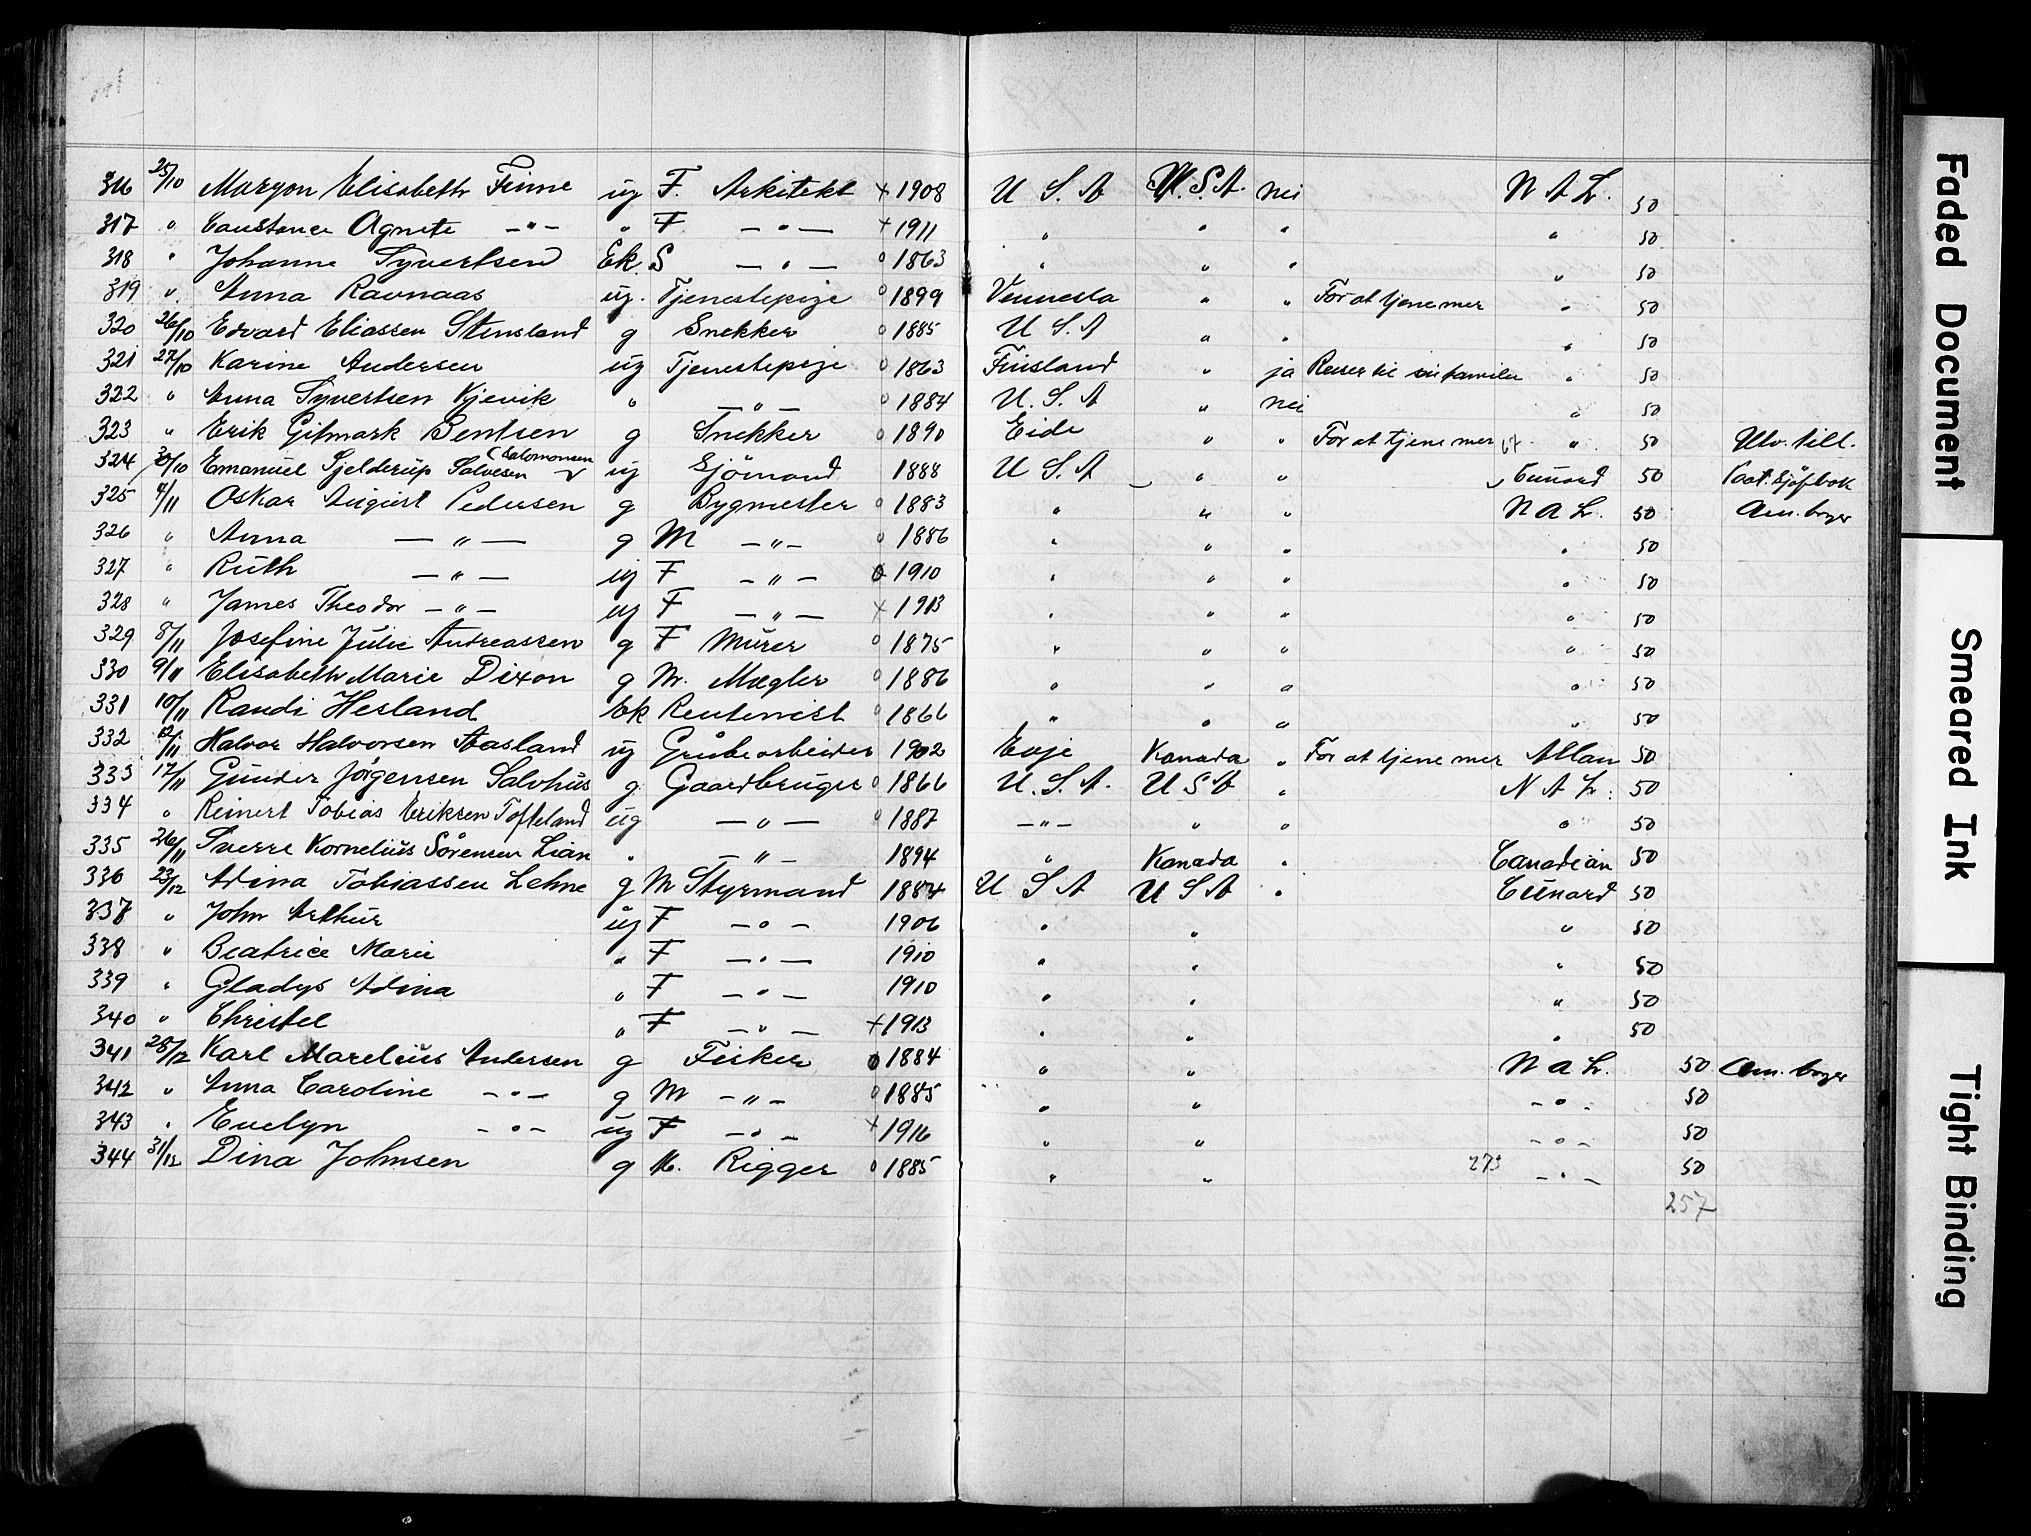 316 25/10 Maryon Elisabeth Finne ug F. Arkitekt × 1908 U S. A U.S.A. nei N A L. 50
317 " Constance Agnete —"— " F —"— + 1911 " " " " 50
318 " Johanne Syvertsen Ek. S —"— o 1863 " " " " 50
319 " Anna Ravnaas ug. Tjenestepige o 1899 Vennesla " " For at tjene mer " 50
320 26/10 Edvard Eliassen Stensland g Snekker o 1885 U S. A " " " 50
321 27/10 Karine Andersen ug Tjenestepige o 1863 Finsland " ja Reiser til sin familie " 50
322 " Anna Syvertsen Kjevik " —"— o 1884 U. S. A " nei " 50
323 " Erik Gitmark Bentsen g Snekker o 1890 Eide " " For at tjene mer " 50 Utv. till.
(Salomonsen
324 30/10 Emanuel Tjelderup Salvesen ug Sjömand 1888 U S. A " " Cunard 50 sjöfbok
325 4/11 Oskar August Pedersen g Bygmester o 1883 " " " N A L. 50 Am. borger
326 " Anna —"— g M —"— o 1886 " " " " 50
327 " Ruth —"— ug F —"— o 1910 " " " " 50
328 " James Theodor —"— ug F —"— × 1913 " " " " 50
329 8/11 Josefine Julie Andreassen g F Murer o 1875 " " " " 50
330 9/11 Elisabeth Marie Dixon g M. Mægler o 1886 " " " " 50
331 10/11 Randi Hesland Ek Rentenist o 1866 " " " " 50
332 12/11 Halvor Halvorsen Aasland ug Grubearbeider 1902 Evje Kanada " For at tjene mer Allan 50
333 17/11 Gunder Jörgensen Salvhus g. Gaardbruger o 1866 U. S. A. U S A " N A L. 50
334 " Reinert Tobias Eriksen Tofteland ug —"— o 1887 —"— " " " 50
335 26/11 Sverre Kornelius Sörensen Lian " —"— 1894 " Kanada " Canadian 50
336 23/12 Adina Tobiassen Lehne g M Styrmand 1884 U S A U S A " Cunard 50
337 " John Arthur ug F —"— 1906 " " " 50
338 " Beatrice Marie " F —"— 1910 " " " 50
339 " Gladys Adina " F —"— 1910 " " " 50
340 " Christel " F —"— + 1913 " " " 50
341 28/12 Karl Marelius Andersen g Fisker o 1884 " " N A L. 50 Am. borger
342 " Anna Caroline —"— g M —"— o 1885 " " —"— 50
343 " Evelyn —"— ug F —"— + 1916 " " —"— 50
344 31/12 Dina Johnsen g M. Rigger o 1885 " " 273 —"— 50
257
Faded Document
Smeared Ink
Tight Binding